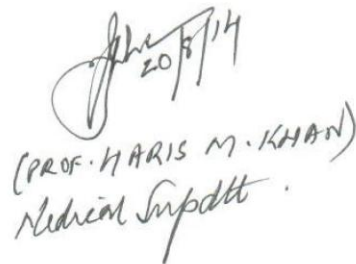 20/8/14
(PROF. HARIS M. KHAN)
Medical Supdtt.